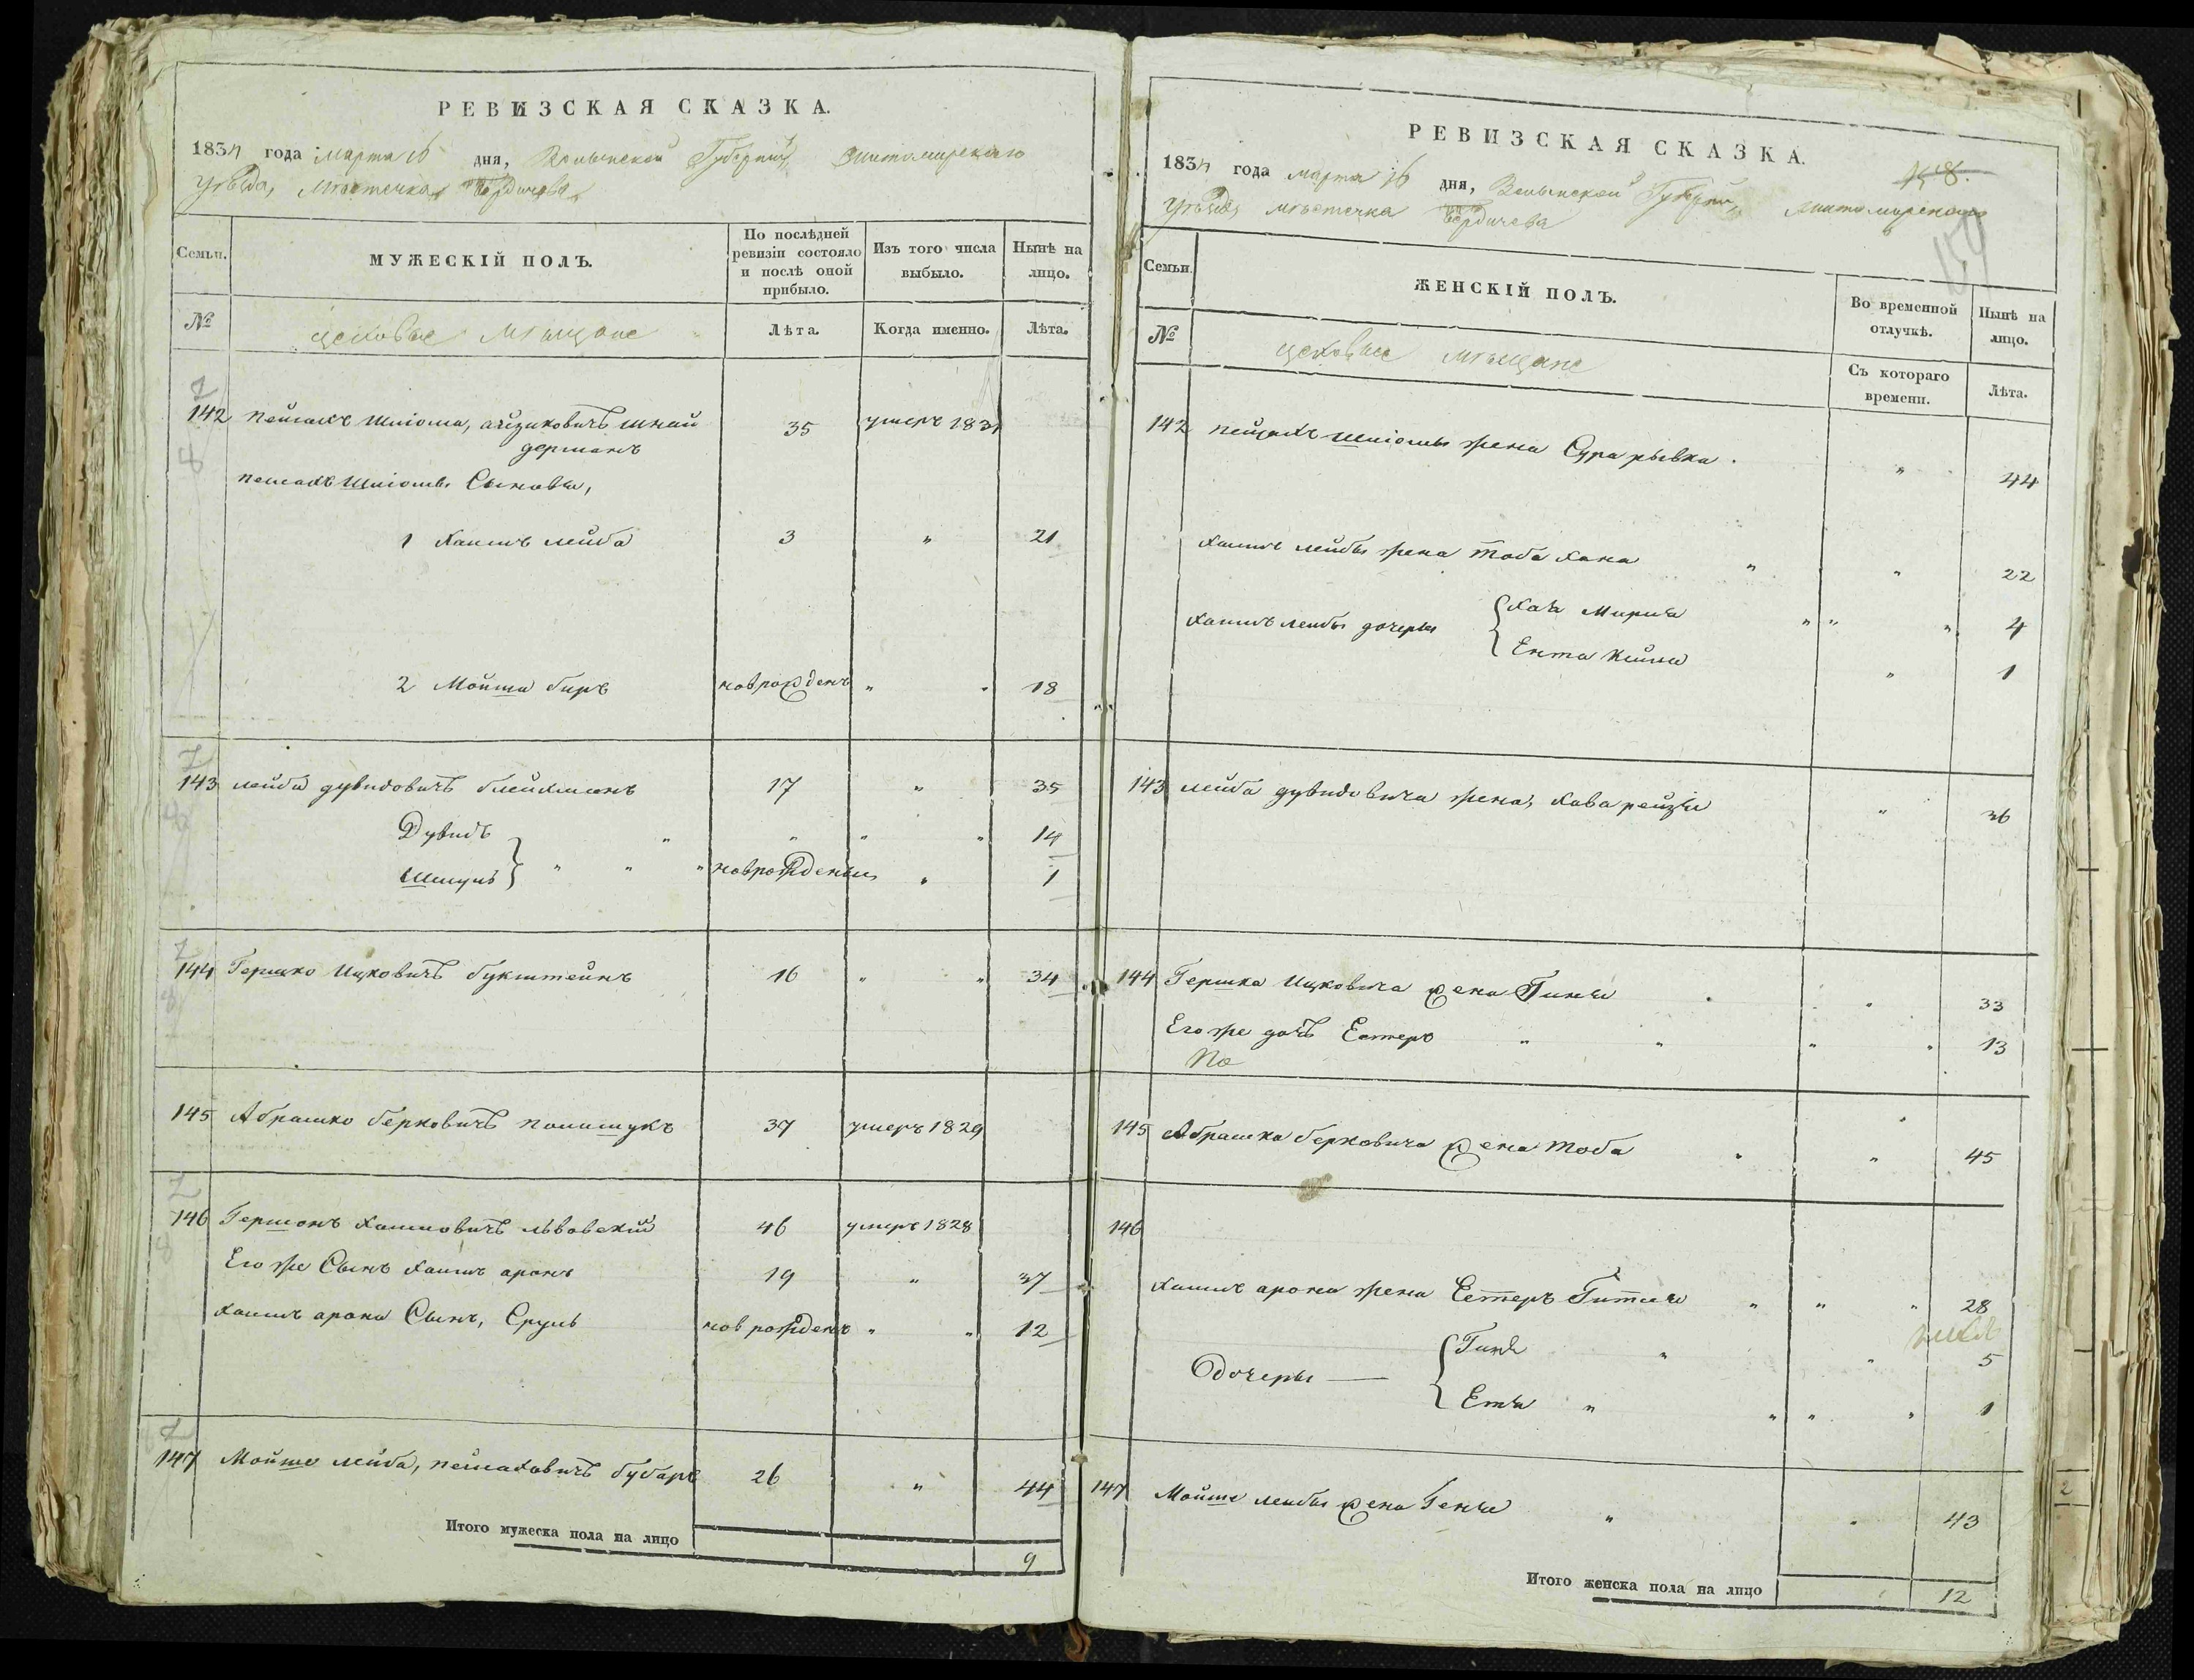 РЕВИЗСКАЯ СКАЗКА.
1834 года марта 16 дня, Волынской Губерніи Житомирскаго
Уѣзда, мѣстечка Бердичева
Семьи.
МУЖЕСКІЙ ПОЛЪ.
По послѣдней ревизіи состояло и послѣ оной прибыло.
Изъ того числа выбыло.
Нынѣ на лицо.
№
цеховые мѣщане
Лѣта.
Когда именно.
Лѣта.
142 Пейсахъ Шліома, айзиковичъ шнай 35 умеръ 1831
дерманъ
пейсахъ Шліомы Сыновья,
1 Хаимъ лейба 3 " 21
2 Мойша биръ новрожденъ " " 18
143 лейба дувидовичъ блейхманъ 17 " 35
Дувидъ " " " " 14
Шмуль " " " новрожденны " 1
144 Гершко Ицковичъ букштейнъ 16 " " 34
145 Абрашко берковичъ полишукъ 37 умеръ 1829
146 Гершонъ хаимовичъ львовскій 46 умеръ 1828
Его же Сынъ хаимъ аронъ 19 " 37
хаимъ арона Сынъ, Сруль новрожденъ " " 12
147 Мойше лейба, пейсаховичъ бубаръ 26 " 44
Итого мужеска пола на лицо 9
РЕВИЗСКАЯ СКАЗКА.
158.
1834 года марта 16 дня, Волынской Губерніи, Житомирскаго
Уѣзда, мѣстечка Бердичева
159
Семьи.
ЖЕНСКІЙ ПОЛЪ.
Во временной отлучкѣ.
Нынѣ на лицо.
№
цеховые мѣщане
Съ котораго времени.
Лѣта.
142 пейсахъ шліомы жена Сура рывка " 44
хаимъ лейбы жена тоба хана " " 22
хаимъ лейбы дочеры Хая Мирля " " " 4
Ента " 1
143 лейба дувидовича жена, хава рейзя " 36
144 Гершка Ицковича жена " 33
Его же дочь Естеръ " " " " 13
145 Абрашка берковича жена Тоба " " 45
146
хаимъ арона жена Естеръ Гитля " " " 28
дочеры — Гиня " " 5
Етя " " " " 1
147 Мойше лейбы жена Геня " " 43
Итого женска пола на лицо 12